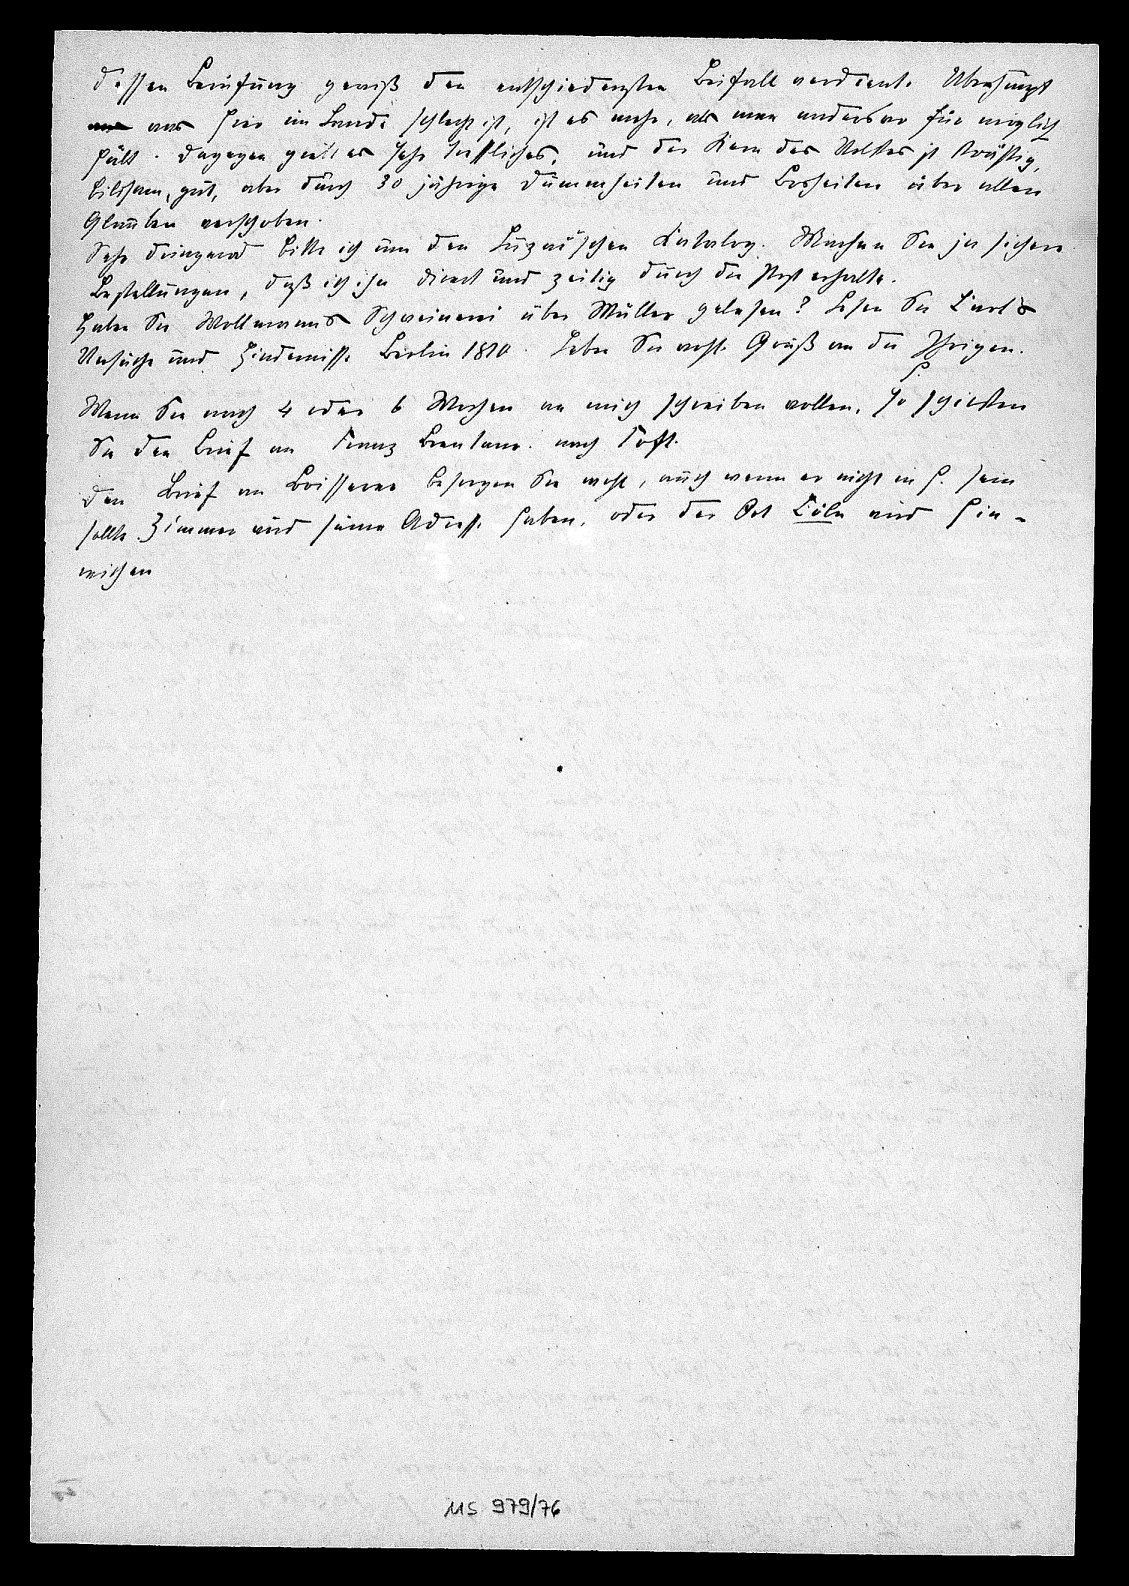 dessen Berufung gewiß den entschiedensten Beifall verdiente. Überhaupt
was hier im Lande schlecht ist, ist es mehr, als man anderswo für möglich
hält. Dagegen giebt es sehr treffliches, und der Kern des Volkes ist kräftig,
bildsam, gut, aber durch 30 jährige Dummheiten und Bosheiten über allen
Glauben verschoben.
Sehr dringend bitte ich um den Katalog. Machen Sie ja sichere
Bestellungen, daß ich ihn direct und zeitig durch die Post erhalte.
Haben Sie Woltmanns Schweinerei über Müller gelesen? Lesen Sie Karls
Versuche und Hindernisse Berlin 1810. Leben Sie wohl. Gruß an die Ihrigen.
S.
Wenn Sie nach 4 oder 6 Wochen an mich schreiben wollen, so schicken
Sie den Brief an Franz Brentano nach Fkft.
Den Brief an Boisseree besorgen Sie wohl, auch wenn er nicht in H. sein
sollte. Zimmer wird seine Adresse haben, oder der Ort Cöln wird hin-
reichen
MS 979/76